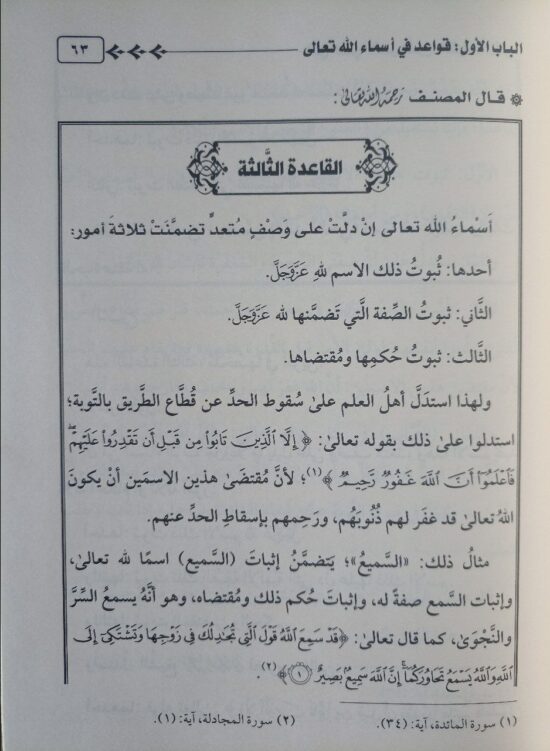 الباب الأول: قواعد في أسماء الله تعالى ٦٣
قال المصنف رَحِمَهُ اللهُ تعَالىٰ :
القاعدة الثَّالثة
أَسْماءُ الله تعالى إنْ دلَّتْ على وَصْفٍ مُتعدٍّ تضمَّنَتْ ثلاثةَ أمور:
أحدها: ثُبوتُ ذلك الاسم للهِ عَزَّوَجَلَّ.
الثَّاني: ثبوتُ الصِّفة الَّتي تَضمَّنها لله عَزَّوَجَلَّ.
الثَّالث: ثبوتُ حُكمِها ومُقتضاها.
ولهذا استدَلَّ أهلُ العلم علىٰ سُقوط الحدِّ عن قُطَّاع الطَّريق بالتَّوبة؛
استدلوا علىٰ ذلك بقوله تعالىٰ: ﴿ إِلَّا ٱلَّذِينَ تَابُوا۟ مِن قَبْلِ أَن تَقْدِرُوا۟ عَلَيْهِمْ ۖ
فَٱعْلَمُوٓا۟ أَنَّ ٱللَّهَ غَفُورٌ رَّحِيمٌ ﴾(١)؛ لأنَّ مُقتضَىٰ هذين الاسمَين أنْ يكونَ
اللهُ تعالىٰ قد غفَر لهم ذُنُوبَهُم، ورَحِمهم بإسقاطِ الحدِّ عنهم.
مثالُ ذلك: «السَّميعُ»؛ يَتضمَّنُ إثباتَ (السَّميع) اسمًا لله تعالىٰ،
وإثبات السَّمع صفةً له، وإثباتَ حُكم ذلك ومُقتضاه، وهو أنَّهُ يسمعُ السِّرَّ
والنَّجْوَىٰ، كما قال تعالىٰ: ﴿قَدْ سَمِعَ ٱللَّهُ قَوْلَ ٱلَّتِى تُجَٰدِلُكَ فِى زَوْجِهَا وَتَشْتَكِىٓ إِلَى
ٱللَّهِ وَٱللَّهُ يَسْمَعُ تَحَاوُرَكُمَآ ۚ إِنَّ ٱللَّهَ سَمِيعٌۢ بَصِيرٌ ١﴾(٢).
(١) سورة المائدة، آية: (٣٤). (٢) سورة المجادلة، آية: (١).